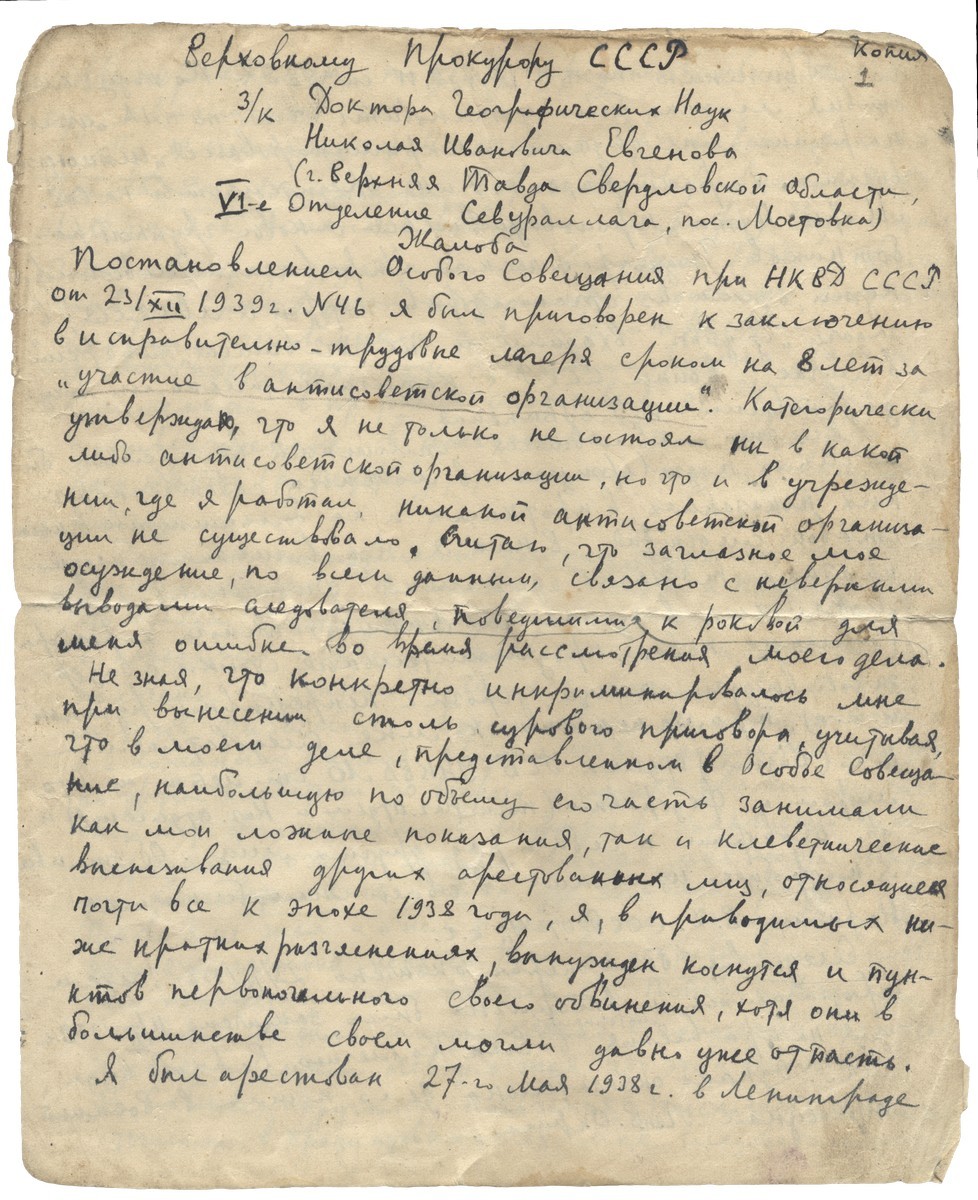 Верховному Прокурору СССР
Копия
1
З/к Доктора Географических Наук
Николая Ивановича Евгенова
(г. Верхняя Тавда Свердловской области,
VI-е Отделение Севураллага, пос. Мостовка)
Жалоба
Постановлением Особого Совещания при НКВД СССР
от 23/XII 1939 г. N46 я был приговорен к заключению
в исправительно-трудовые лагеря сроком на 8 лет за
„участие в антисоветской организации". Категорически
утверждаю, что я не только не состоял ни в какой
либо антисоветской организации, но что и в учрежде-
нии, где я работал, никакой антисоветской организа-
ции не существовало. Считаю, что заглазное мое
осуждение, по всем данным, связано с неверными
выводами следователя, поведшими к роковой для
меня ошибке во время рассмотрения моего дела.
Не зная, что конкретно инкриминировалось мне
при вынесении столь сурового приговора, учитывая,
что в моем деле, представленном в Особое Совеща-
ние, наибольшую по объему его часть занимали
как мои ложные показания, так и клеветнические
высказывания других арестованных лиц, относящиеся
почти все к эпохе 1938 года, я, в приводимых ни-
же кратких разъяснениях, вынужден коснуться и пун-
ктов первоначального своего обвинения, хотя они в
большинстве своем могли давно уже отпасть.
Я был арестован 27-го Мая 1938 г. в Ленинграде